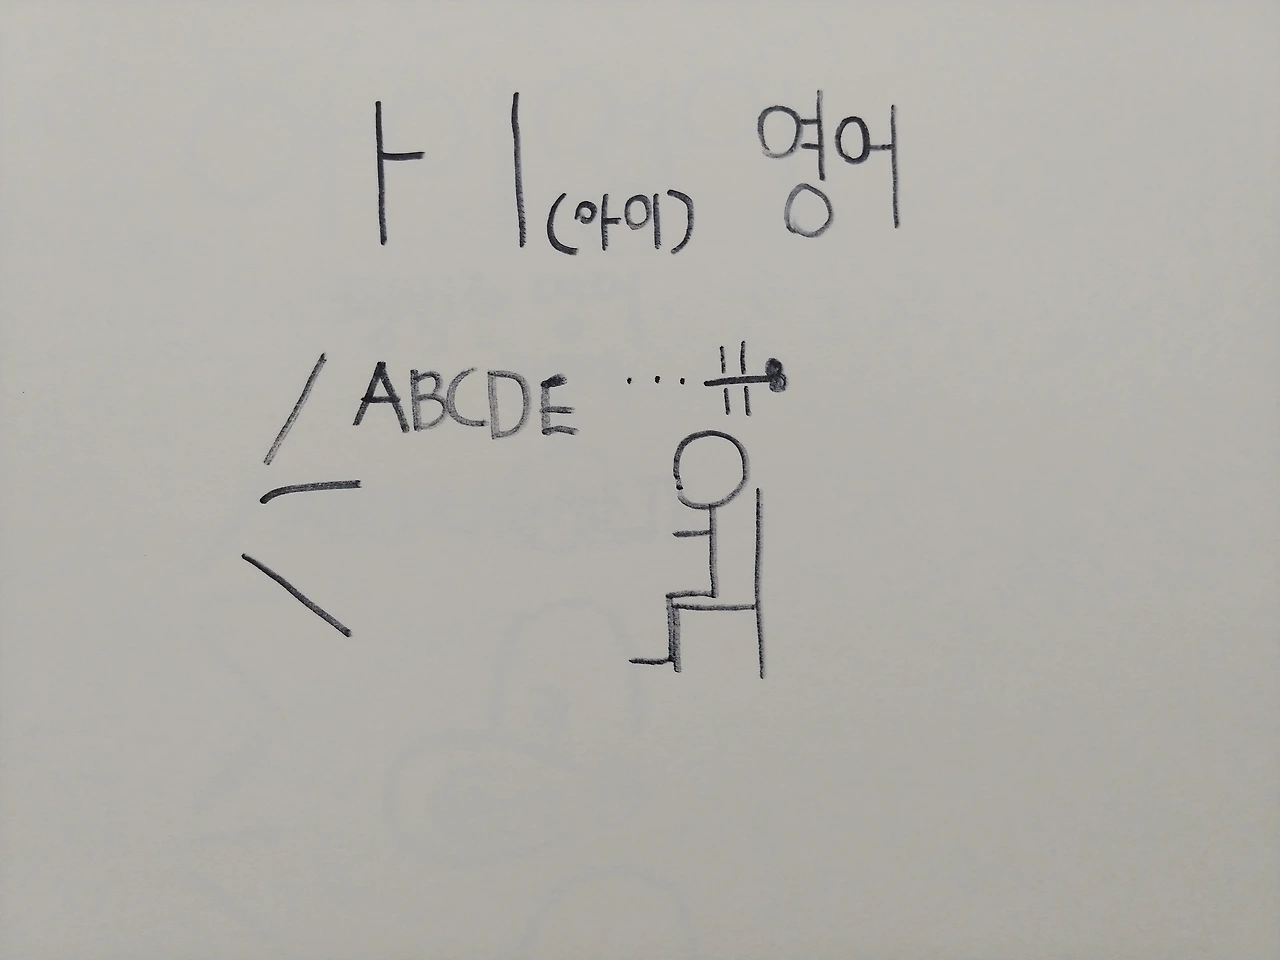 ㅏ ㅣ(아이) 영어
ABCDE ...